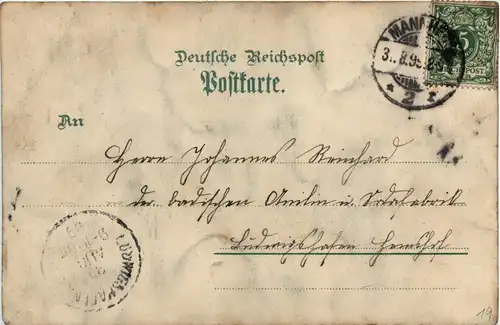 Deutsche Reichspost
Postkarte.
MANNH
3. 8.9
* 2 r
5
POST
An
Herrn Johannes Reinhard
in der badischen Anilin u Sodafabrik
Ludwigshafen Hemshof.
LUDWIGSHAFEN
19